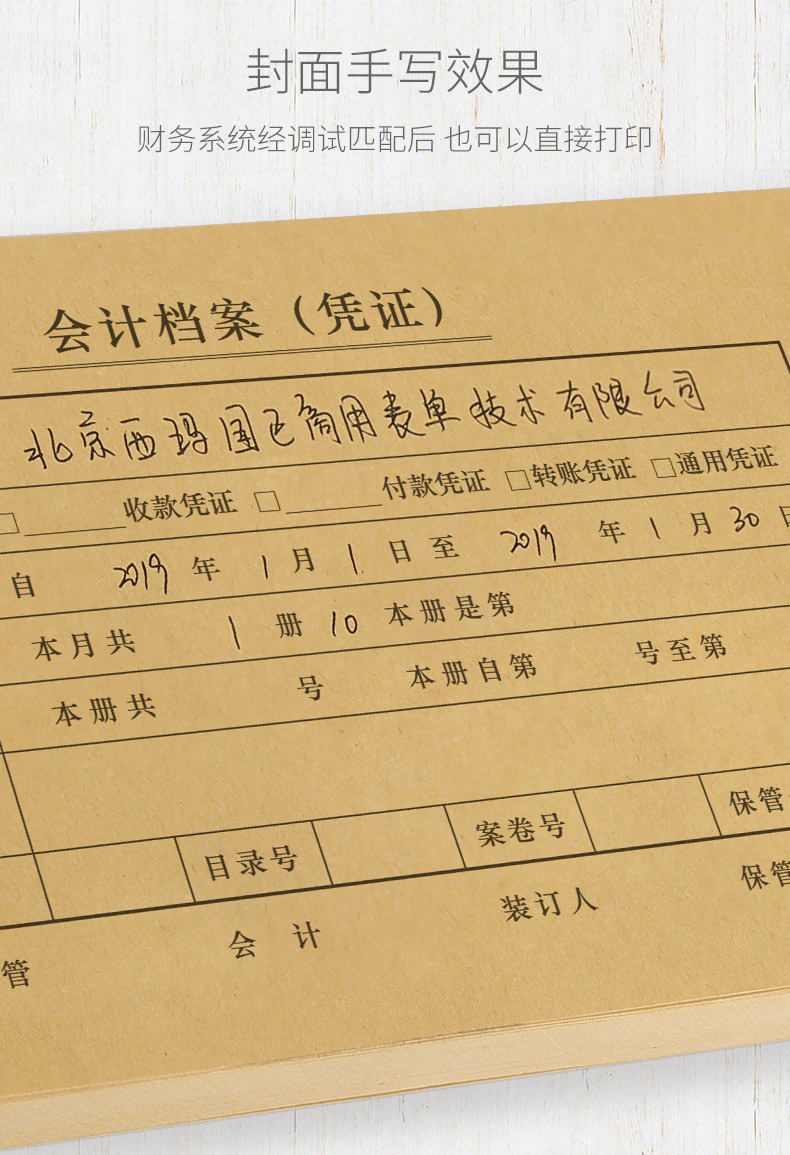 封面手写效果
财务系统经调试匹配后 也可以直接打印
会计档案（凭证）
北京西玛国已商用表单技术有限公司
□________收款凭证 □________付款凭证 □转账凭证 □通用凭证
自 2019 年 1 月 1 日 至 2019 年 1 月 30 日
本月共 1 册 10 本册是第
本册共 号 本册自第 号至第
目录号 案卷号 保管
管 会 计 装订人 保管